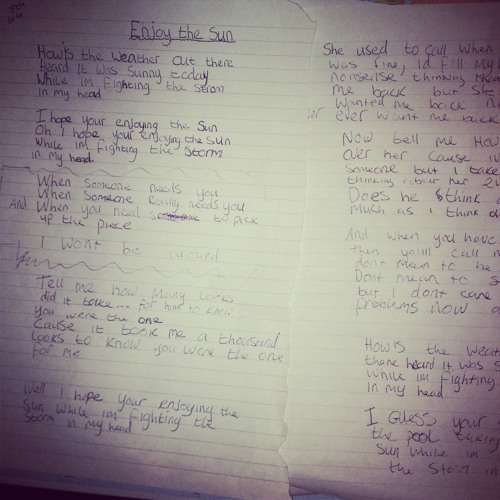 Enjoy the Sun
How's the weather out there
Heard it was sunny today
While im fighting the strom
in my head
I hope your enjoying the Sun
Oh I hope your enjoying the Sun
While im fighting the Storm
in my head.
When Someone needs you
When Someone Really needs you
And When you need to pick
up the piece
I wont be around
Tell me how many looks
did it take... for him to know
you were the one
Cause it took me a thousand
looks to know you were the one
for me
Well I hope your enjoying the
Sun while im fighting the
Storm in my head
She used to call when
was fine, id fill my
nonsense thinking
me back but
wanted me back
or ever want me back
Now tell me How
over her cause
someone but I take
thinking about her
Does he think
much as i think
And when you have
then youll call
dont mean to be
Dont mean to
but I dont care
problems now
How's the
there heard it was
while im fighting
in my head
I Guess your
the pool taking
Sun while im
the Storm in